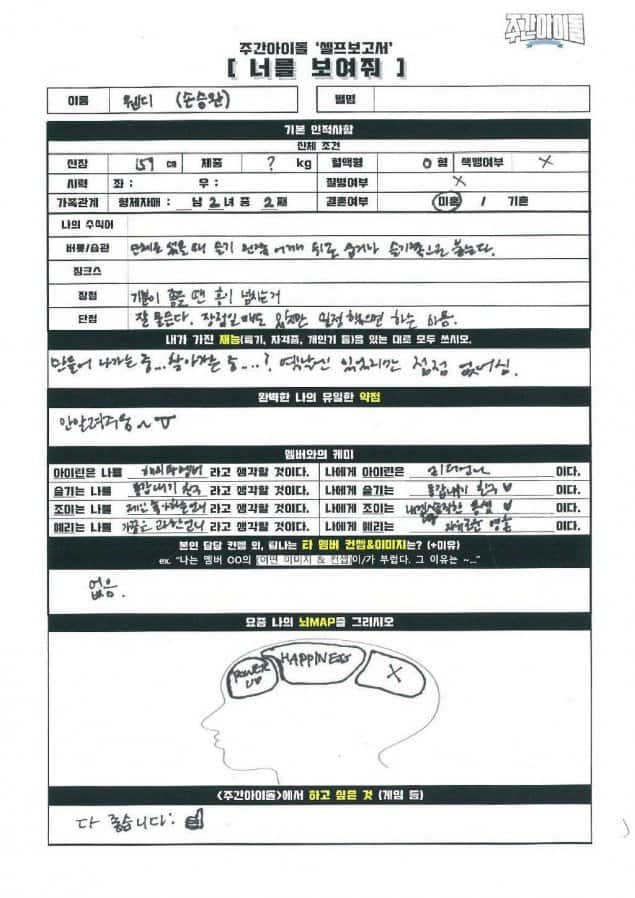 주간아이돌
주간아이돌 '셀프보고서'
[ 너를 보여줘 ]
이름 웬디 (손승완) 별명
기본 인적사항
신체 조건
신장 159 cm 체중 ? kg 혈액형 O 형 색맹여부 X
시력 좌 : 우 : 질병여부 X
가족관계 형제자매 : 남 2 녀 중 2 째 결혼여부 미혼 / 기혼
나의 수식어
버릇/습관 단체로 있을 때 슬기 왼쪽 어깨 뒤로 숨거나 슬기쪽으로 붙는다.
징크스
장점 기분이 좋을 땐 흥이 넘치는거
단점 잘 믿는다. 장점일 때도 있지만
내가 가진 재능(특기, 자격증, 개인기 등)을 있는 대로 모두 쓰시오.
만들어 나가는 중... 찾아가는 중...? 옛날엔 있었지만 점점 없어짐.
완벽한 나의 유일한 약점
안알려주웅~
멤버와의 케미
아이린은 나를 라고 생각할 것이다. 나에게 아이린은 이다.
슬기는 나를 동갑내기 친구 라고 생각할 것이다. 나에게 슬기는 동갑내기 친구 ♥ 이다.
조이는 나를 제일 좋아하는언니 라고 생각할 것이다. 나에게 조이는 ♥ 이다.
예리는 나를 가끔은 과한언니 라고 생각할 것이다. 나에게 예리는 자유로운 영혼 이다.
본인 담당 컨셉 외, 탐나는 타 멤버 컨셉&이미지는? (+이유)
ex. "나는 멤버 OO의 '어떤 이미지 & 컨셉'이/가 부럽다. 그 이유는 ~..."
없음.
요즘 나의 뇌MAP을 그리시오
POWER UP HAPPINESS X
<주간아이돌>에서 하고 싶은 것 (게임 등)
다 좋습니다: